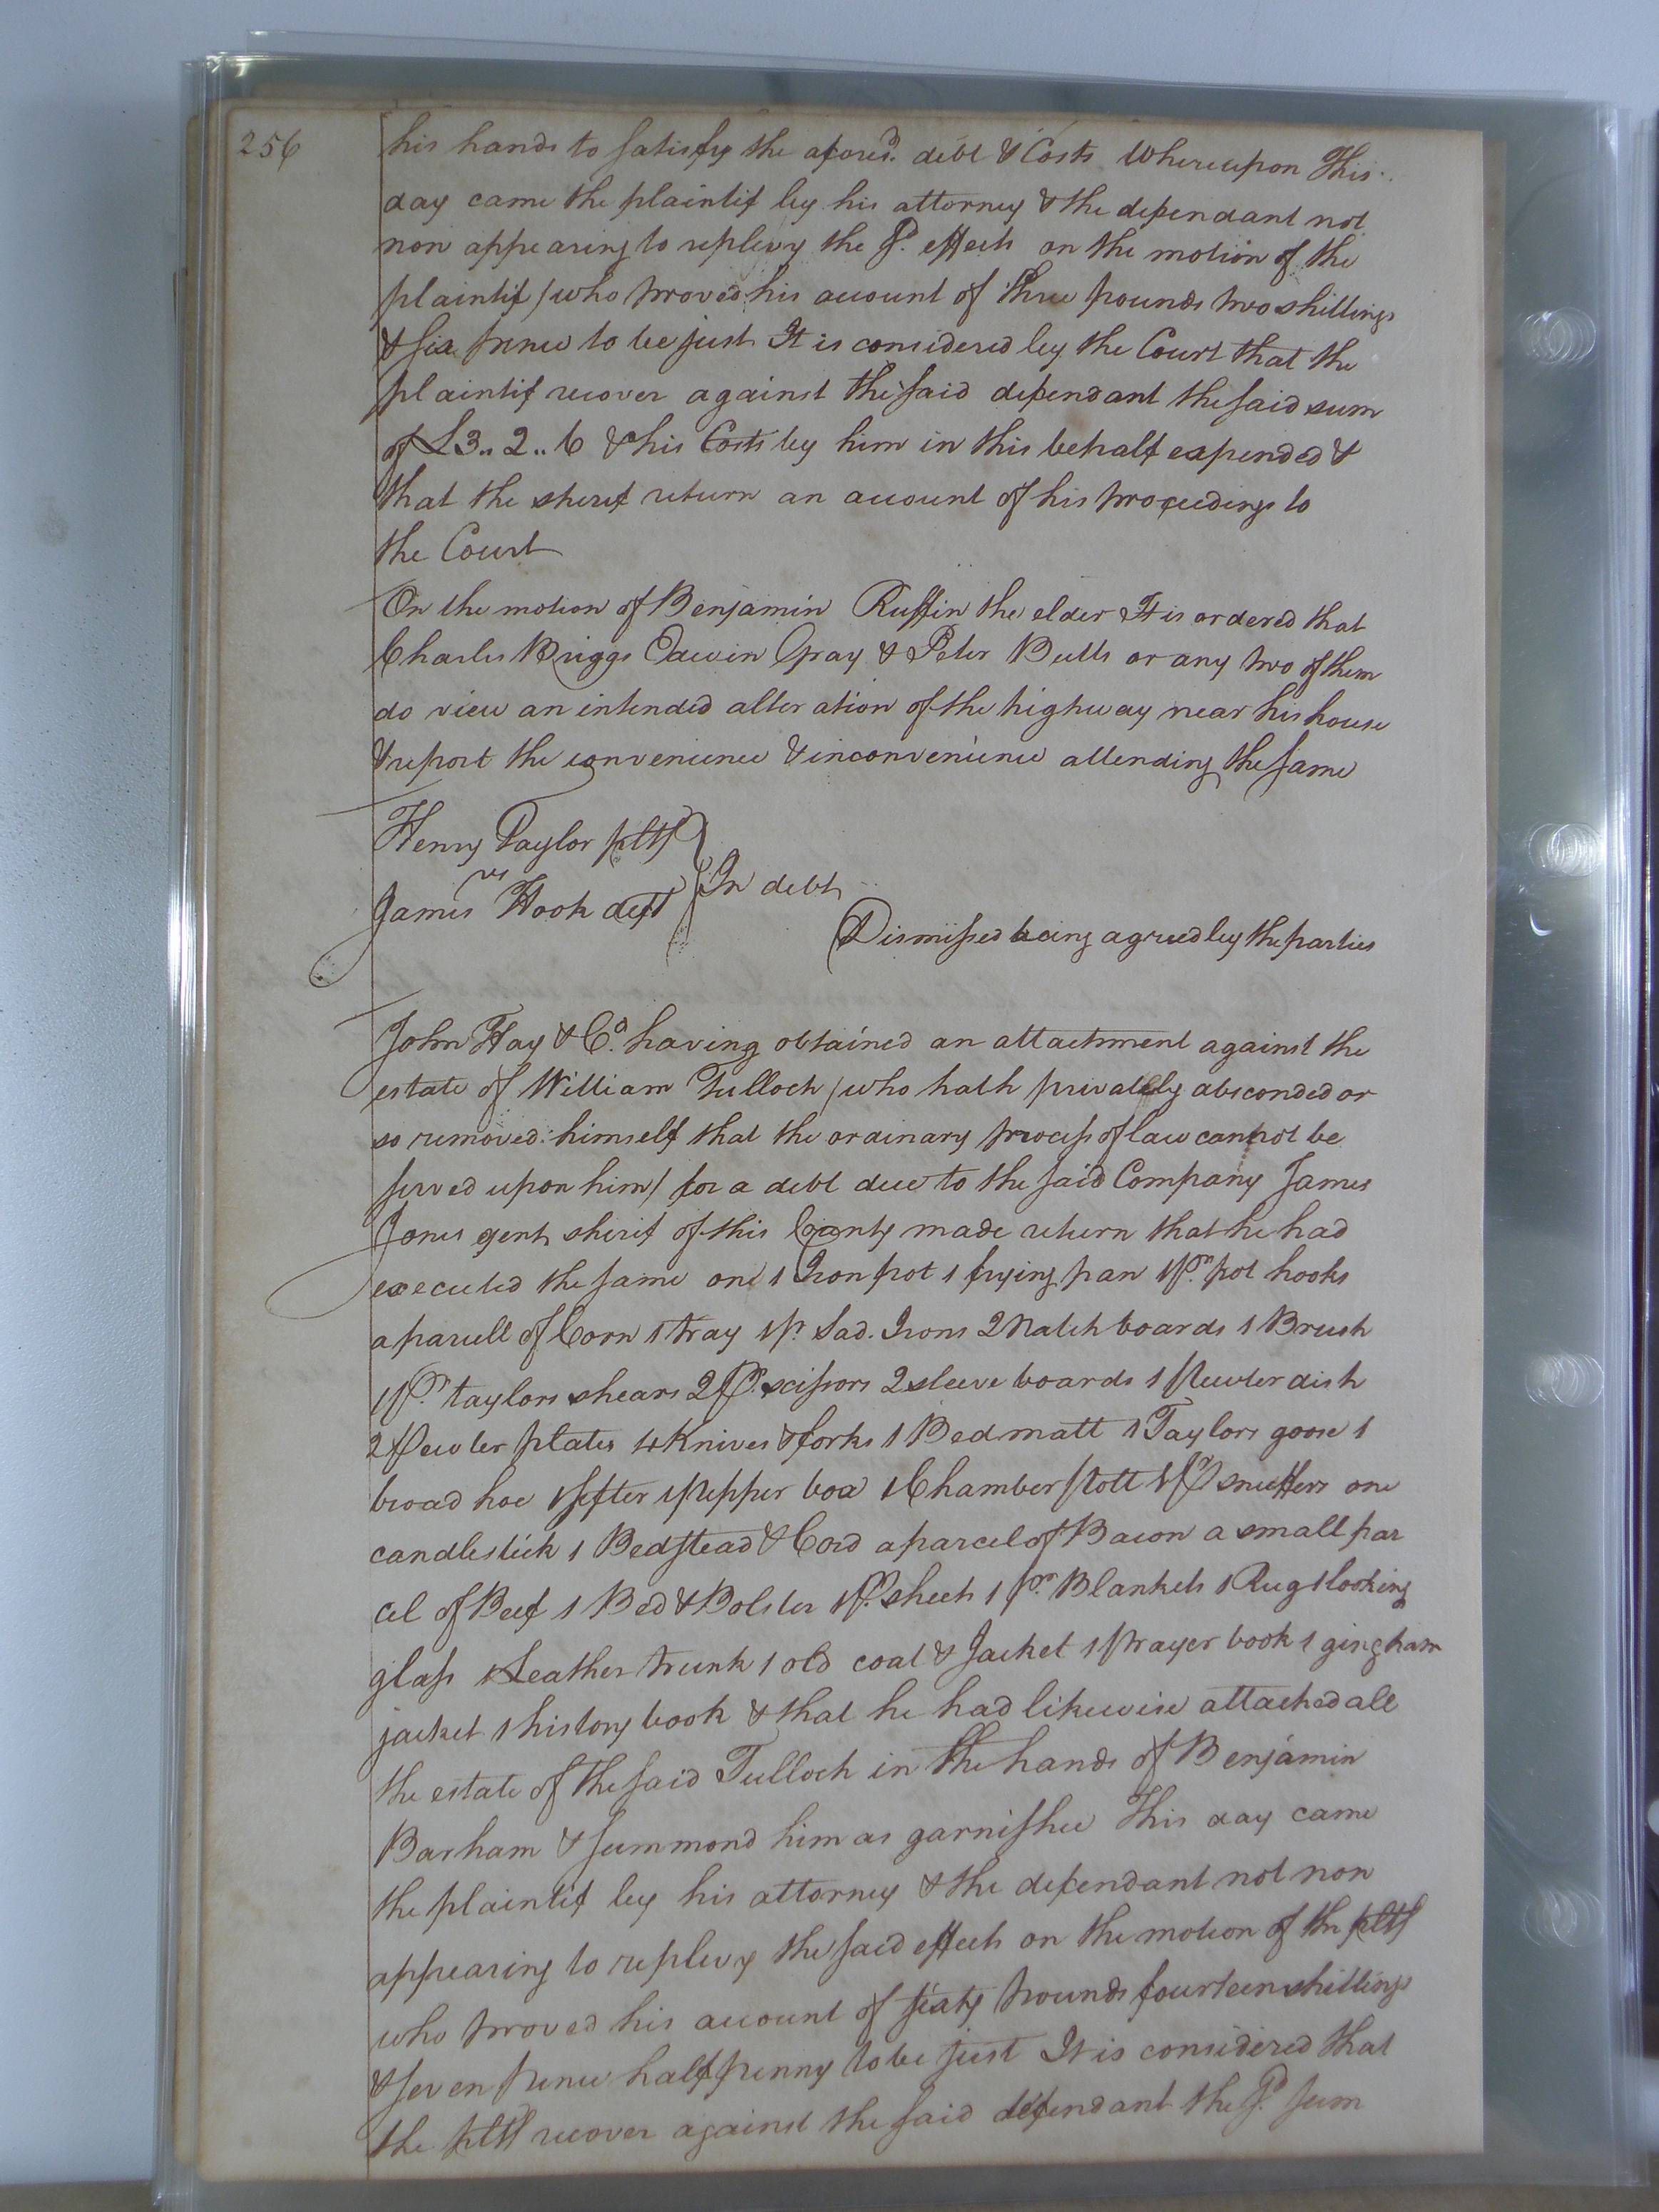 256
his hands to satisfy the afores.d debt & Costs Whereupon This
day came the plaintif by his attorney & the defendant not
non appearing to replevy the s.d effects on the motion of the
plaintif /who proved his account of three pounds two shillings
& six pence to be just It is considered by the Court that the
plaintif recover against the said defendant the said sum
of £3..2..6 & his Costs by him in this behalf expended &
that the sherif return an account of his proceedings to
the Court
On the motion of Benjamin Ruffin the elder It is ordered that
Charles Briggs Edwin Gray & Peter Butts or any two of them
do view an intended alteration of the highway near his house
& report the convenience & inconvenience attending the same
Henry Taylor pltf
vs
In debt
James Hook deft
Dismissed being agreed by the parties
John Hay & Co. having obtained an attachment against the
estate of William Tulloch /who hath privately absconded or
so removed himself that the ordinary process of law cannot be
served upon him/ for a debt due to the said Company James
Jones gent sherif of this County made return that he had
executed the same one 1 Iron pot 1 frying pan 1 p.r pot hooks
a parcell of Corn 1 tray 1 p.r Sad. Irons 2 boards 1 Brush
1 p.r taylors shears 2 p.r scissors 2 sleeve boards 1 pewter dish
2 pewter plates 4 Knives & forks 1 Bed matt 1 Taylors goose 1
broad hoe 1 sifter 1 pepper box 1 Chamber pott 1 p.r snuffers one
candlestick 1 Bedstead & Cord a parcel of Bacon a small par
cel of Beef 1 Bed & Bolster 1 p.r sheets 1 p.r Blankets 1 Rug 1 looking
glass 1 Leather trunk 1 old coat & Jacket 1 prayer book 1 gingham
jacket 1 history book & that he had likewise attached all
the estate of the said Tulloch in the hands of Benjamin
Barham & summond him as garnishee This day came
the plaintif by his attorney & the defendant not non
appearing to replevy the said effects on the motion of the pltf
who proved his account of sixty pounds fourteen shillings
& seven pence half penny to be just It is considered that
the pltf recover against the said defendant the s.d sum